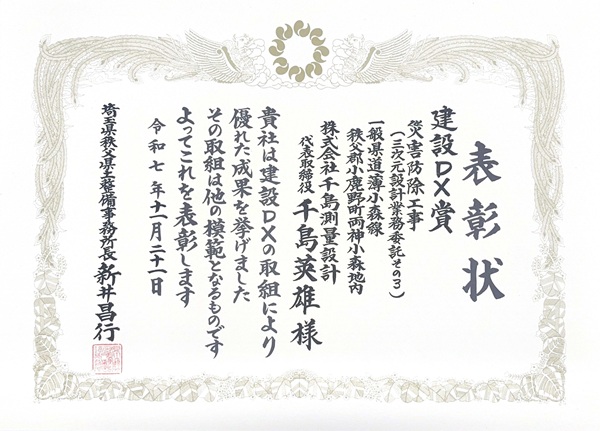 表彰状
建設DX賞
災害防除工事
（三次元設計業務委託その3）
一般県道薄小森線
秩父郡小鹿野町両神小森地内
株式会社千島測量設計
代表取締役 千島英雄様
貴社は建設DXの取組により
優れた成果を挙げました
その取組は他の模範となるものです
よってこれを表彰します
令和七年十一月二十一日
埼玉県秩父県土整備事務所長 新井昌行